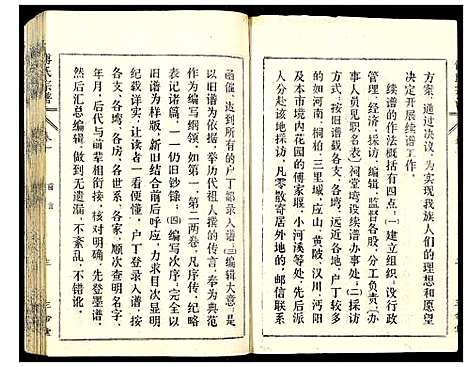 方案，通过决议，为实现我族人们的理想和愿望
决定开展续谱工作。
续谱的作法概括有四点：(一)建立组织，设行政
管理、经济、采访、编辑、监督各股，分工负责（办
事人员见职名表）祠堂塆设续谱办事处；(二)采访
方式：按旧谱载各支、各塆，远近各地，户丁较多
的如河南、桐柏、三里城、应山、黄陂、汉川、沔阳
及本市境内花园的傅家堰、小河溪等处，先后派
人分赴该地採访，凡零散寄居外地的，邮信联系
函催，达到所有的户丁都录入谱；(三)编辑大意：是
以旧谱为依据，举历代祖人撰的传言，奉为典范
作为编写纲领，如第一、第二两卷，凡序传、纪略
表记诸篇，一一仍旧钞録。(四)编写次序，完全以
旧谱为样版，新旧结合前后呼应，力求目次显明
纪载详实，让读者一看便明。户丁登录入谱，按
各支、各塆、各房、各世系、各家，顺次查明名字、
年月，后代与前辈相衔接，核对明确，先登墨谱，
然后汇总编辑，做到无遗漏，不紊乱，不错讹。
傅氏宗谱
卷一